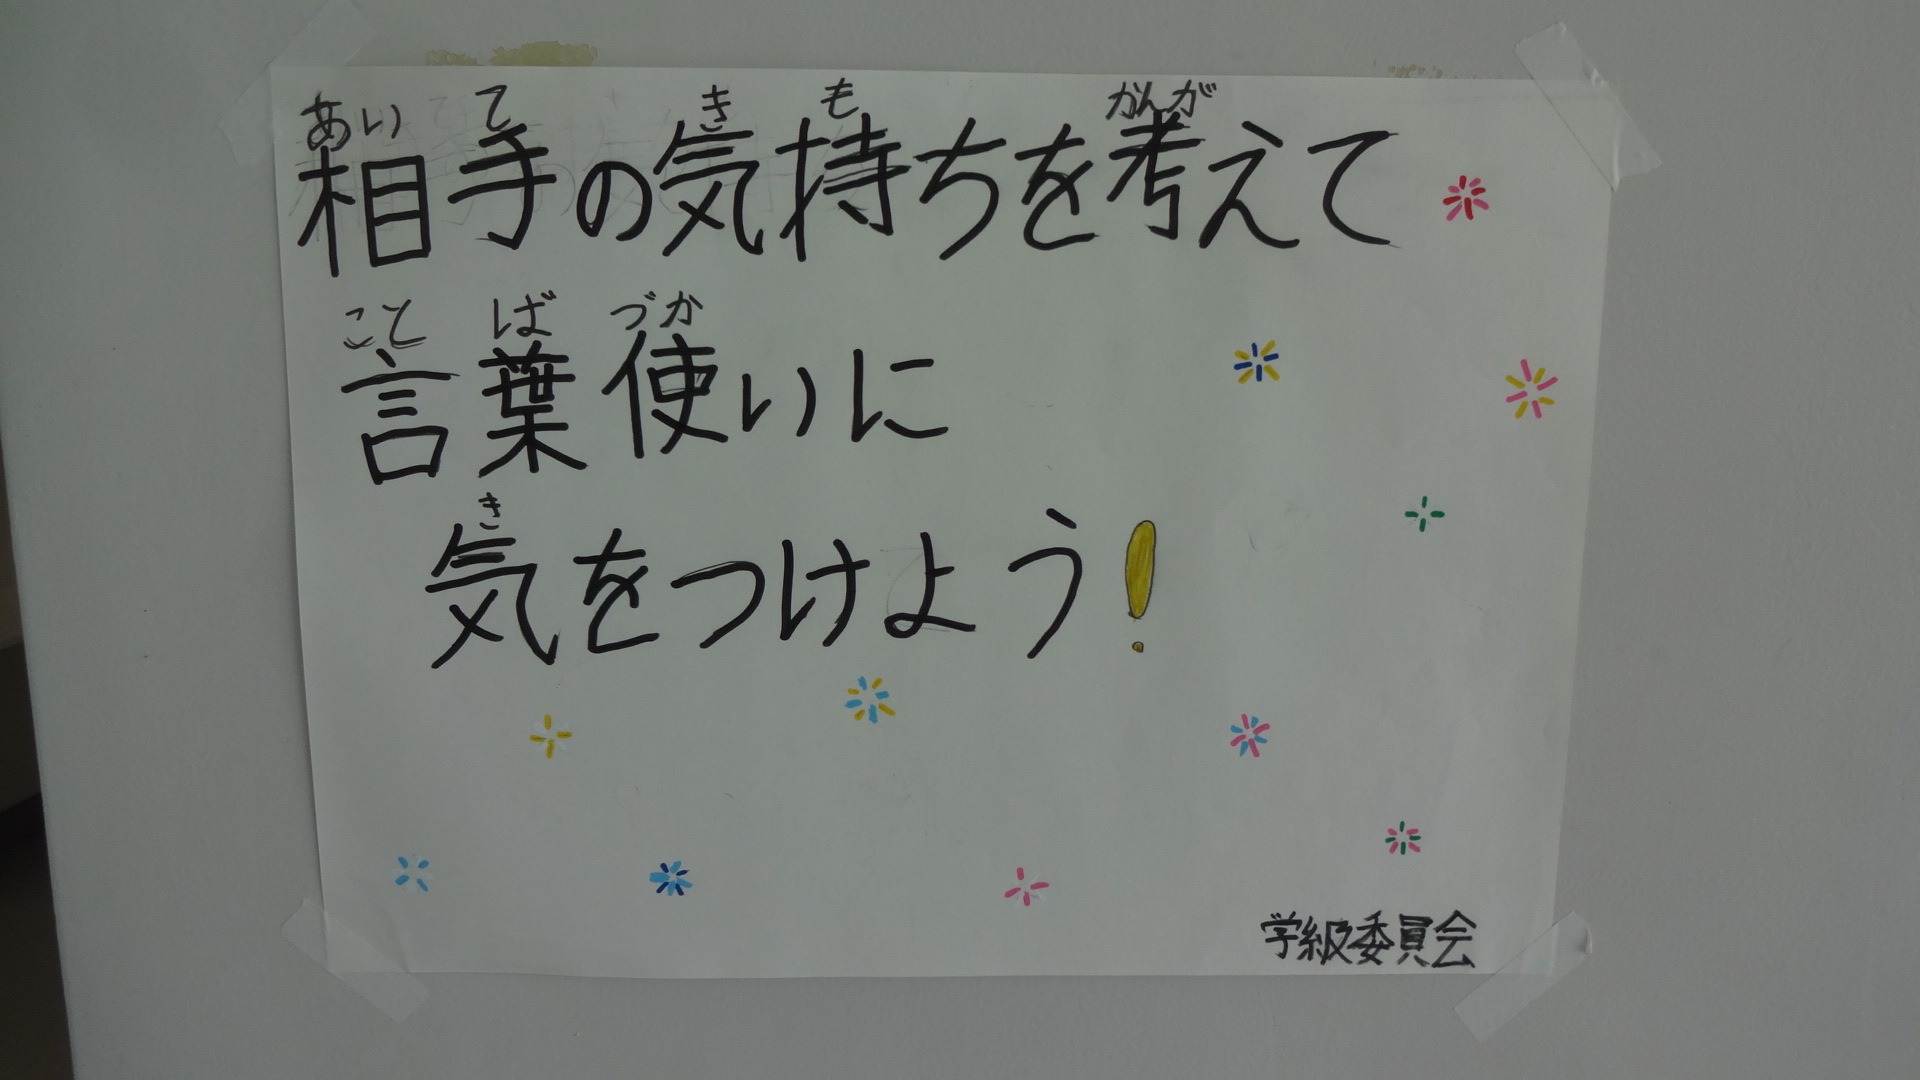 あい て き も かんが
相手の気持ちを考えて
こと ば づか
言葉使いに
き
気をつけよう!
学級委員会